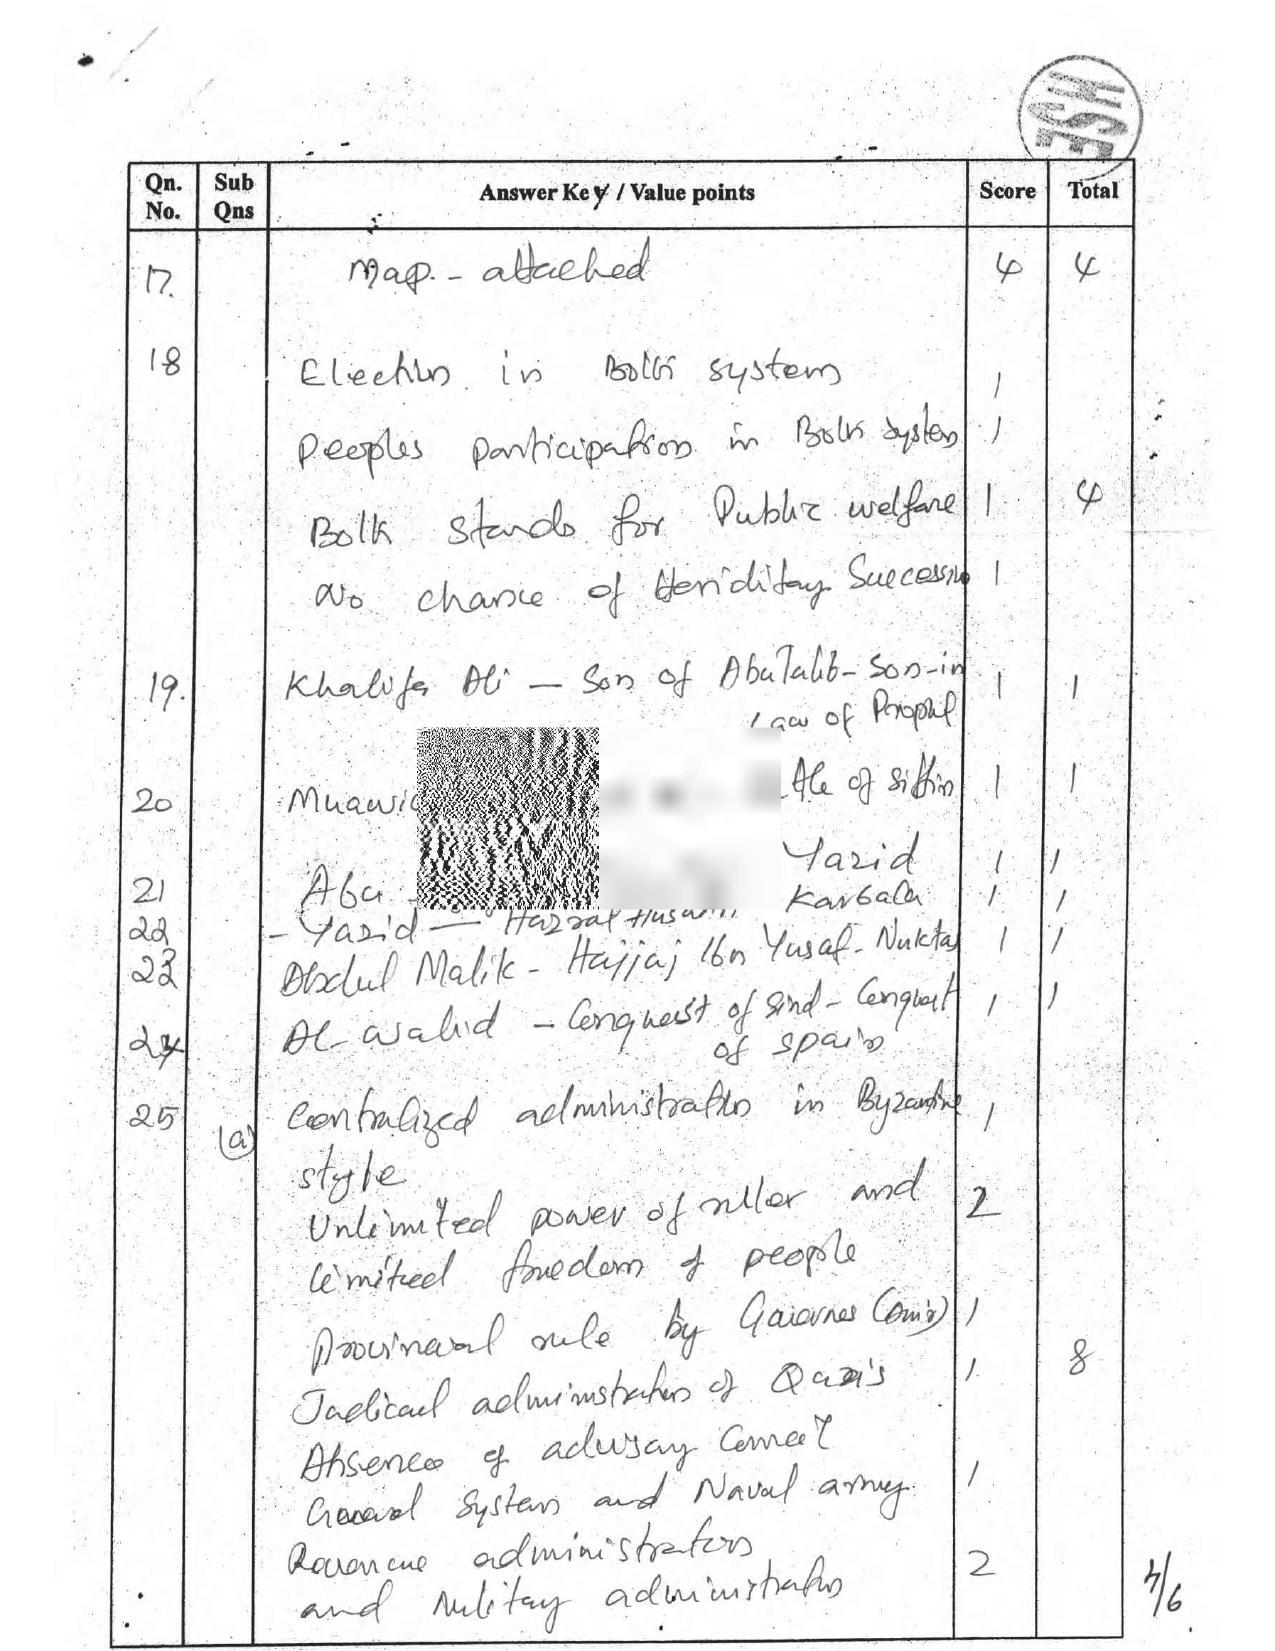 HSE
Qn. No. Sub Qns Answer Key / Value points Score Total
17. Map. - attached 4 4
18 Election in Bolk system 1
Peoples participation in Bolk system 1
Bolk stands for Public welfare 1 4
No chance of Heriditay Succession 1
19. Khalifa Ali — Son of AbuTalib - Son-in 1 1
law of Prophet
20 Muawi ttle of siffin 1 1
21 Abu Yazid 1 1
22 - Yazid — Hazrat Husain Karbala 1 1
23 Abdul Malik - Hajjaj Ibn Yusaf - Nuktas 1 1
24 Al-walid - Conquest of Sind - Conquest 1 1
of spain
25 (a) Centralized administration in Byzantine 1
style
Unlimited power of ruller and 2
limited freedom of people
Provincial rule by Gaiornes (Amir) 1
Judicial administration of Qazi's 1 8
Absence of advisay
system and Naval army 1
Revenue administration
and Military administration 2
4/6